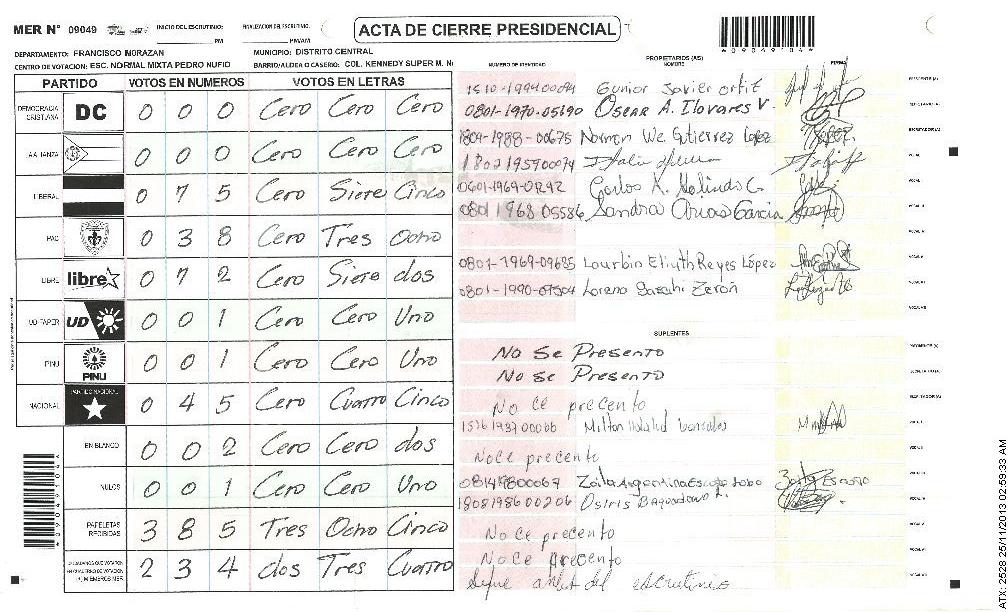 MER N° 09049 INICIO DEL ESCRUTINIO: PM FINALIZACION DEL ESCRUTINIO: PM/AM ACTA DE CIERRE PRESIDENCIAL
*09049104*
DEPARTAMENTO: FRANCISCO MORAZAN MUNICIPIO: DISTRITO CENTRAL
CENTRO DE VOTACION: ESC. NORMAL MIXTA PEDRO NUFIO BARRIO/ALDEA O CASERIO: COL. KENNEDY SUPER M. N
PARTIDO VOTOS EN NUMEROS VOTOS EN LETRAS
DEMOCRACIA CRISTIANA DC 0 0 0 Cero Cero Cero
ALIANZA 0 0 0 Cero Cero Cero
LIBERAL 0 7 5 Cero Siete Cinco
PAC 0 3 8 Cero Tres Ocho
LIBRE libre 0 7 2 Cero Siete dos
UD-FAPER UD 0 0 1 Cero Cero Uno
PINU PINU 0 0 1 Cero Cero Uno
NACIONAL PARTIDO NACIONAL 0 4 5 Cero Cuatro Cinco
EN BLANCO 0 0 2 Cero Cero dos
NULOS 0 0 1 Cero Cero Uno
PAPELETAS RECIBIDAS 3 8 5 Tres Ocho Cinco
CIUDADANOS QUE VOTARON 2 3 4 dos Tres Cuatro
NUMERO DE IDENTIDAD PROPIETARIOS (AS) NOMBRE FIRMA
Gunior Javier Ortiz
0801-1970-05190 Oscar A. V.
1804-1988-00675 Norman We. Gutierrez Lopez
Carlos
0801 1968 05586 Sandra Arias Garcia
0801-1969-09685 Lourbin Reyes López
0801-1990- Lorena Zerón
SUPLENTES
No Se Presento
No Se Presento
No ce precento
Milton Gonzales
No ce precento
Zoila Argentina Lobo
18081986 00206 Osiris
No ce precento
No ce precento
del escrutinio
ATX-2528 25/11/2013 02:59:33 AM
*09049104*